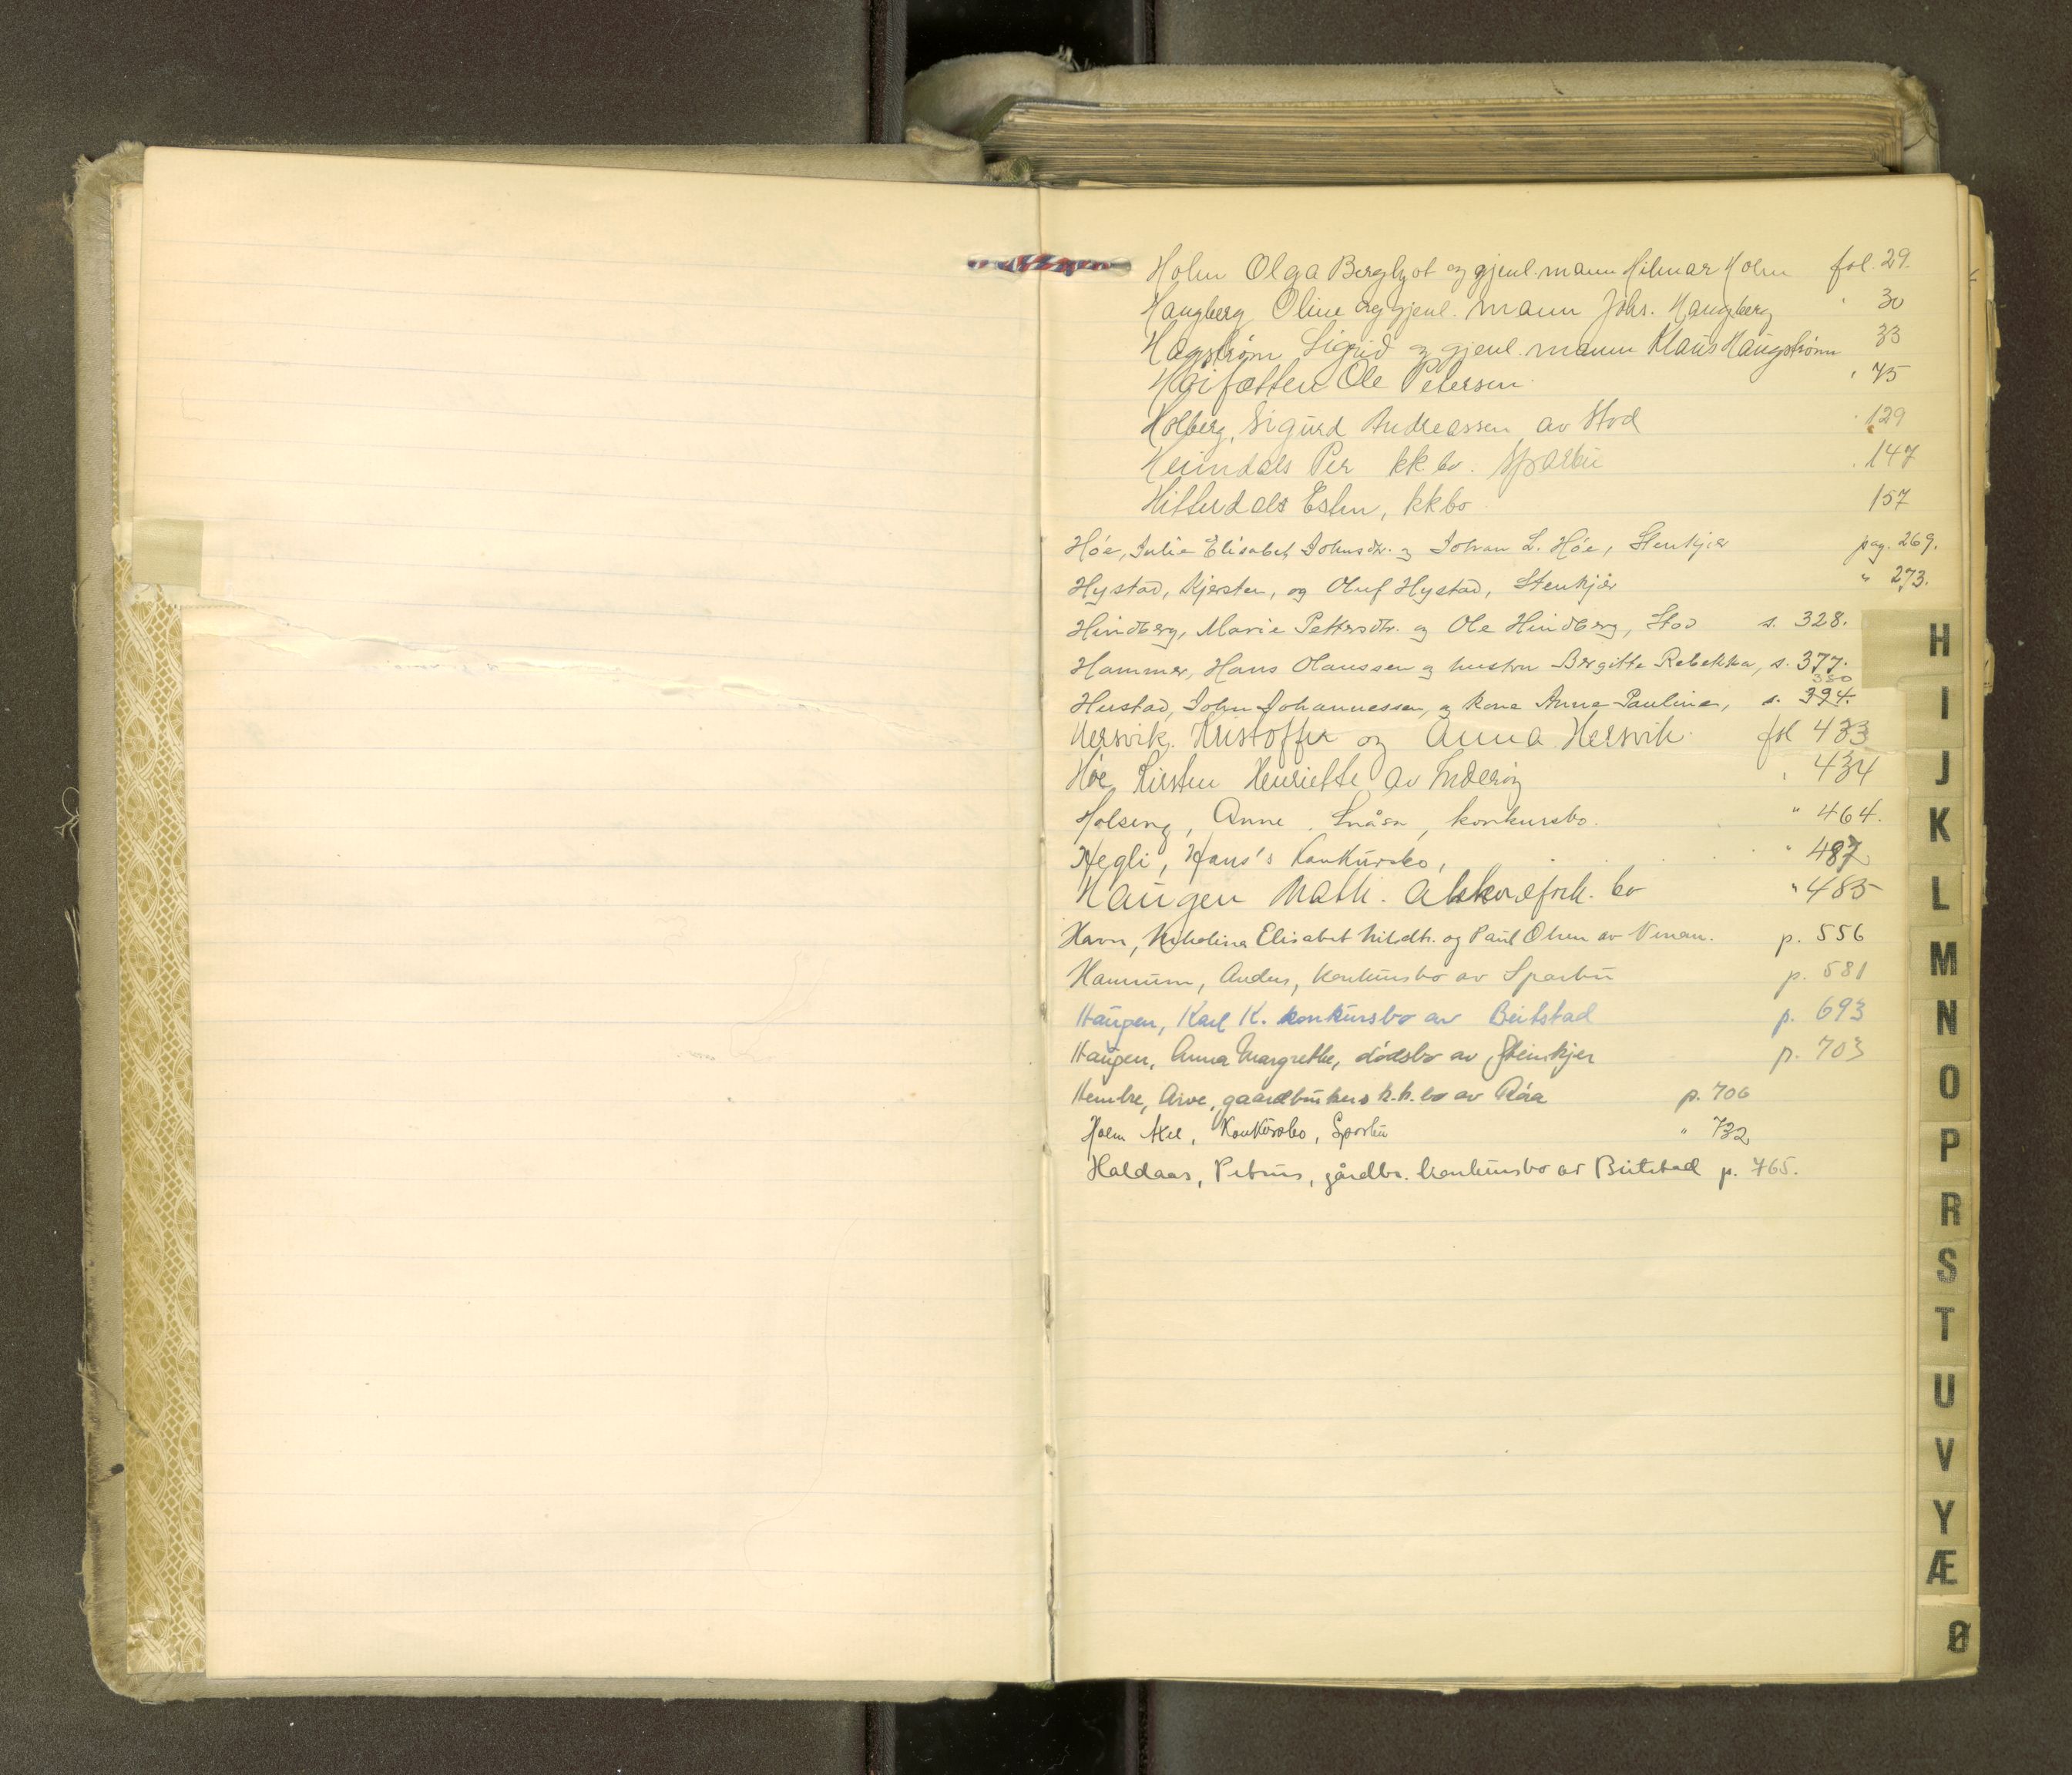 Holm Olga Bergljot og gjenl. mann Hilmar Holm fol. 29.
Haugberg Oline og gjenl. mann Johs. Haugberg " 30
Hagstrøm Sigrid og gjenl. mann Klaus Haugstrøm 33
Ole Petersen " 75
Holberg, Sigurd Andreassen av Stod " 129
Heimdals Per kk. bo. Sparbu " 147
Hitterdals Esten, kkbo 157
Høe, Julie Elisabet Johnsdtr. og Johan L. Høe, Stenkjær pag. 269.
Hystad, Kjersten, og Oluf Hystad, Stenkjær " 273.
Hindberg, Marie Pettersdtr. og Ole Hindberg, Stod s. 328.
Hammer, Hans Olaussen og hustru Birgitte Rebekka, s. 377.
380
Hustad, John Johannessen, og kone Anna Pauline, s. 394.
Hersvik, Kristoffer og Anna Hersvik fol 433
Høe Kirsten Henriette av Inderøy " 434
Holseng, Anne, Snåsa, konkursbo. " 464.
Hegli, Hans's Konkursbo, " 487
Haugen Math. akkordforh. bo " 485
Havn, Elisabet Nilsdtr. og Paul Olsen av p. 556
Hammum, Anders, konkursbo av Sparbu p. 581
Haugen, Karl K. konkursbo av Beitstad p. 693
Haugen, Anna Margrethe, dødsbo av Steinkjer p. 703
Hembre, Arve, gaardbrukers k.k. bo av Røra p. 706
Holm Axel, Konkursbo, Sparbu " 732
Haldaas, Petrus, gårdbr. konkursbo av Beitstad p. 765.
H
I
J
K
L
M
N
O
P
R
S
T
U
V
Y
Æ
Ø